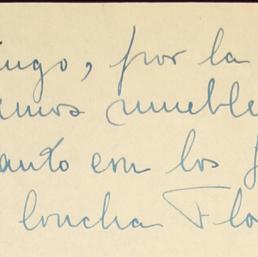 ingo, por la
emos mueble
anto con los
Concha Flo